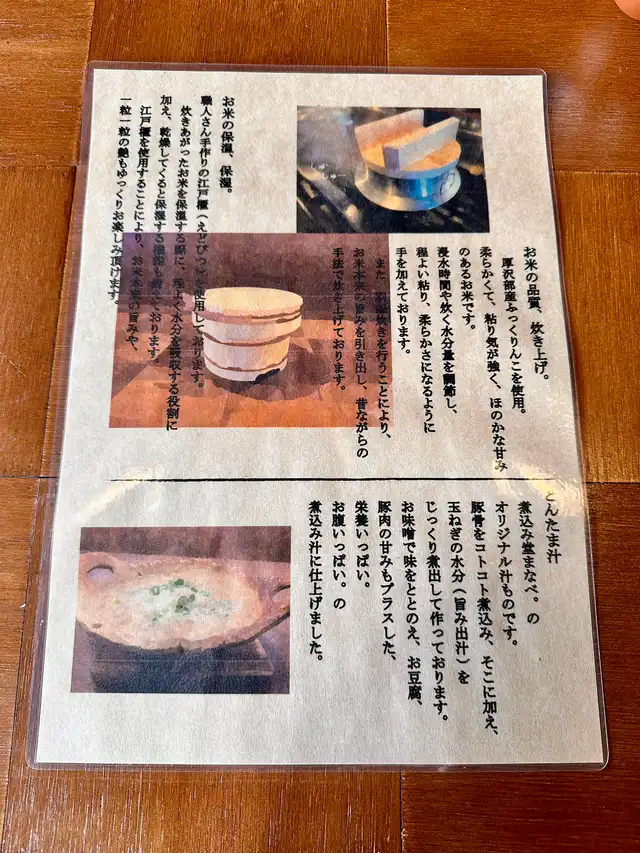 お米の品質、炊き上げ。
厚沢部産ふっくりんこを使用。
柔らかくて、粘り気が強く、ほのかな甘み
のあるお米です。
浸水時間や炊く水分量を調節し、
程よい粘り、柔らかさになるように
手を加えております。
また、羽釜炊きを行うことにより、
お米本来の旨みを引き出し、昔ながらの
手法で炊き上げております。
お米の保温、保湿。
職人さん手作りの江戸櫃(えどびつ)を使用しております。
炊きあがったお米を保温する際に、程よく水分を吸収する役割に
加え、乾燥してくると保湿する おります。
江戸櫃を使用することにより、お米本来の旨みや、
一粒一粒の艶もゆっくりお楽しみ頂けます。
とんたま汁
煮込み堂まなべ。の
オリジナル汁ものです。
豚骨をコトコト煮込み、そこに加え、
玉ねぎの水分(旨み出汁)を
じっくり煮出して作っております。
お味噌で味をととのえ、お豆腐、
豚肉の甘みもプラスした、
栄養いっぱい。
お腹いっぱい。の
煮込み汁に仕上げました。